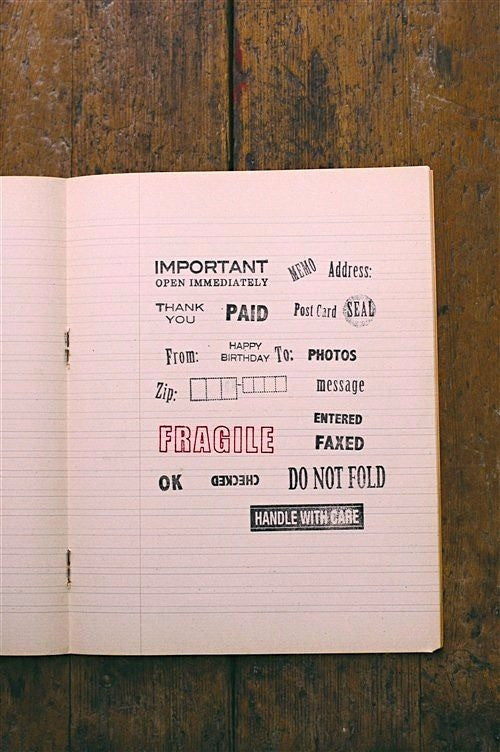 IMPORTANT MEMO Address:
OPEN IMMEDIATELY
THANK YOU PAID Post Card SEAL
From: HAPPY BIRTHDAY To: PHOTOS
Zip: message
ENTERED
FRAGILE FAXED
OK CHECKED DO NOT FOLD
HANDLE WITH CARE